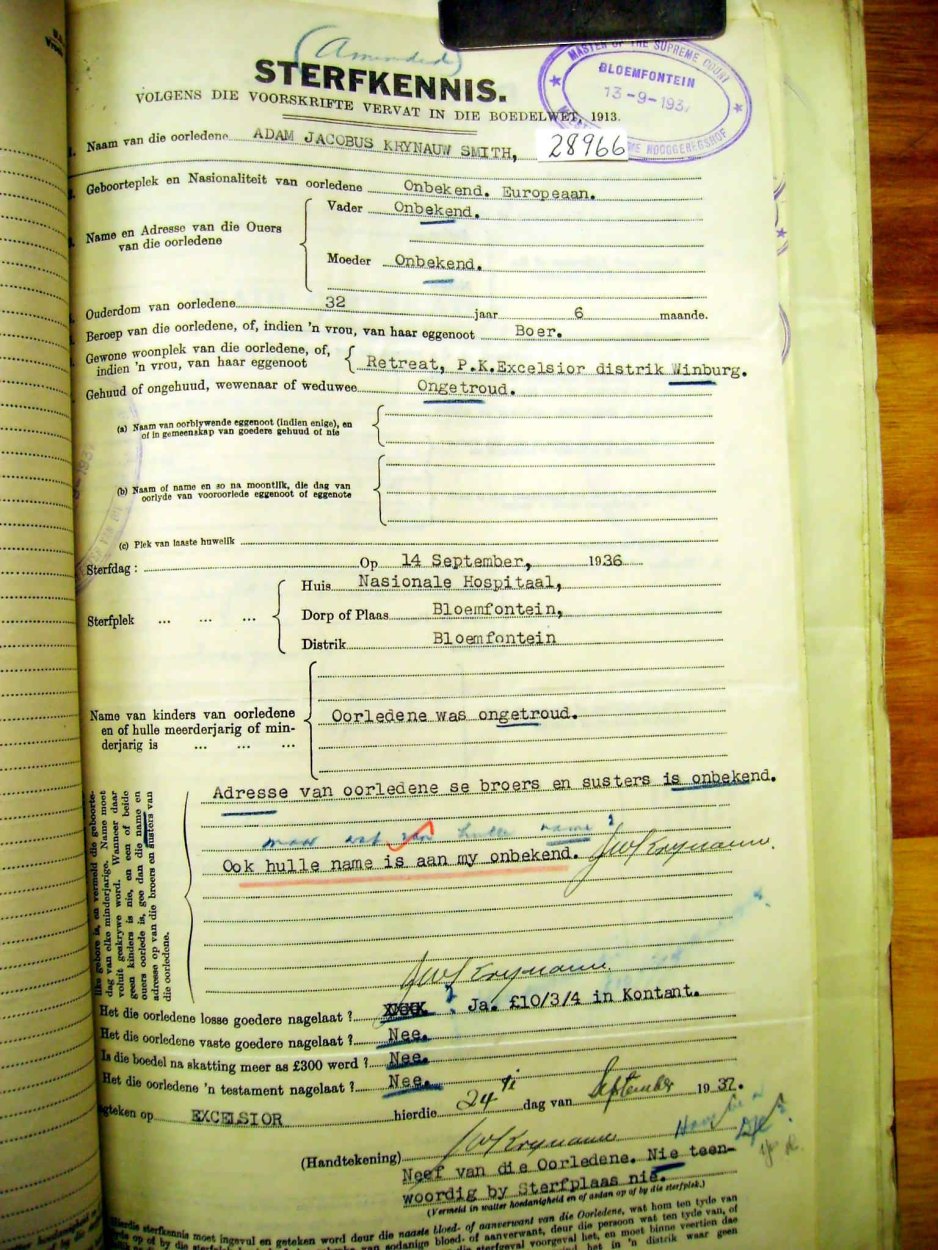 (Amended)
STERFKENNIS.
VOLGENS DIE VOORSKRIFTE VERVAT IN DIE BOEDELWET, 1913.
MASTER OF THE SUPREME COURT
BLOEMFONTEIN
13-9-193
HOOGGEREGSHOF
Naam van die oorledene ADAM JACOBUS KRYNAUW SMITH, 28966
Geboorteplek en Nasionaliteit van oorledene Onbekend. Europeaan.
Name en Adresse van die Ouers van die oorledene
Vader Onbekend.
Moeder Onbekend.
Ouderdom van oorledene 32 jaar 6 maande.
Beroep van die oorledene, of, indien 'n vrou, van haar eggenoot Boer.
Gewone woonplek van die oorledene, of, indien 'n vrou, van haar eggenoot Retreat, P.K.Excelsior distrik Winburg.
Gehuud of ongehuud, wewenaar of weduwee Ongetroud.
(a) Naam van oorblywende eggenoot (indien enige), en
of in gemeenskap van goedere gehuud of nie
(b) Naam of name en so na moontlik, die dag van
oorlyde van vooroorlede eggenoot of eggenote
(c) Plek van laaste huwelik
Sterfdag: Op 14 September, 1936
Sterfplek ... ... ...
Huis Nasionale Hospitaal,
Dorp of Plaas Bloemfontein,
Distrik Bloemfontein
Name van kinders van oorledene
en of hulle meerderjarig of min-
derjarig is ... ... ...
Oorledene was ongetroud.
dag van elke minderjarige. Name moet
voluit geskrywe word. Wanneer daar
geen kinders is nie, en een of beide
ouers oorlede is, gee dan die name en
adresse op van die broers en susters van
die oorledene.
Adresse van oorledene se broers en susters is onbekend.
maar wat van hulle name?
Ook hulle name is aan my onbekend. Krynauw
Krynauw
Het die oorledene losse goedere nagelaat? XXXX Ja. £10/3/4 in Kontant.
Het die oorledene vaste goedere nagelaat? Nee.
Is die boedel na skatting meer as £300 werd? Nee.
Het die oorledene 'n testament nagelaat? Nee.
EXCELSIOR hierdie 24 dag van September 1937.
(Handtekening) Krynauw
Neef van die Oorledene. Nie teen-
woordig by Sterfplaas nie.
(Vermeld in watter hoedanigheid en of aedan op of by die sterfplek.)
Hierdie sterfkennis moet ingevul en geteken word deur die naaste bloed- of aanverwant van die Oorledene, wat hom ten tyde van